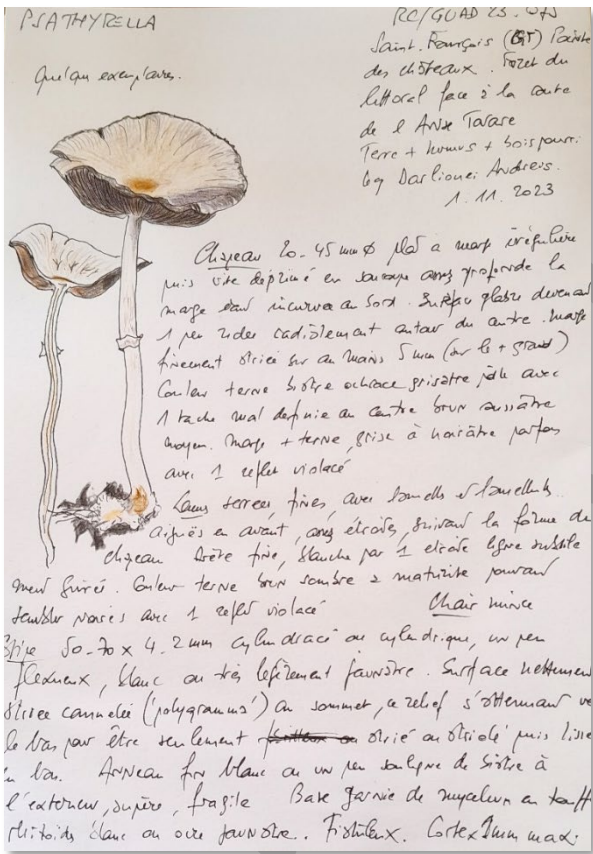 PSATHYRELLA
RC/GUAD 23.
Saint-François (GT) Pointe
des châteaux. Foret du
littoral face à la route
de l'Anse Tarare
Terre + humus + bois pourri
leg Darlionei Andreis.
1.11.2023
Quelques exemplaires.
Chapeau 20-45 mm Ø plat à marge irrégulière
puis vite déprimé en soucoupe assez profonde la
marge étant incurvée au bord. Surface glabre devenant
1 peu ridée radialement autour du centre. Marge
finement striée sur au moins 5 mm (sur le + grand)
Couleur terne bistre ochracé grisâtre pâle avec
1 tache mal définie au centre brun roussâtre
moyen. Marge + terne, grise à noirâtre parfois
avec 1 reflet violacé
Lames serrées, fines, avec lamelles et lamellules
aiguës en avant, assez étroites, suivant la forme du
chapeau Arête fine, blanche par 1 étroite ligne subtile
ment givrée. Couleur terne brun sombre à maturité pouvant
sembler noires avec 1 reflet violacé
Chair mince
Stipe 50-70 x 4.2 mm cylindracé ou cylindrique, un peu
flexueux, blanc ou très légèrement fauvâtre. Surface nettement
striée cannelée ('polygramma') au sommet, ce relief s'atténuant ve
le bas pour être seulement strié ou striolé puis lisse
en bas. Anneau fin blanc ou un peu souligné de bistre à
l'extérieur, supère, fragile Base garnie de mycelium en touff
rhizoïds blanc ou ocre fauvâtre. Fistuleux. Cortex 1mm max.